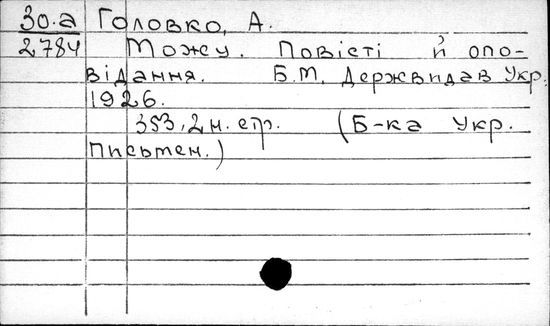 30.а Головко, А.
2784 Можу. Повісті й опо-
відання. Б.М. Державидав Укр.
1926.
353, 2 н. стр. (Б-ка Укр.
Письмен.)